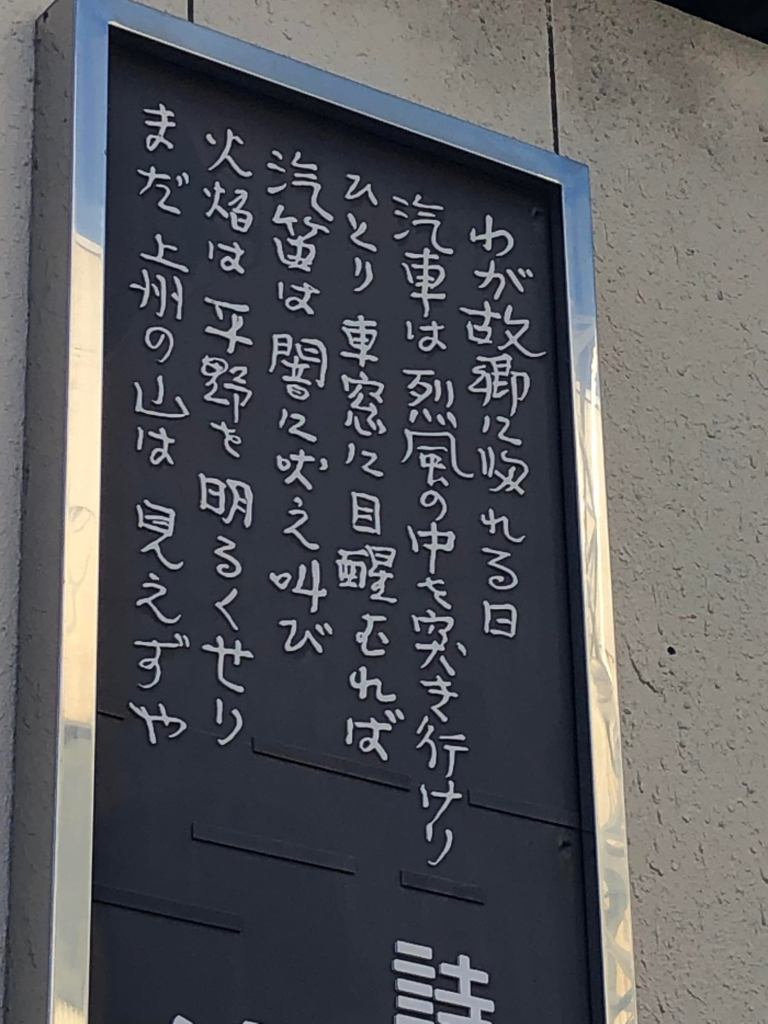 わが故郷に帰れる日
汽車は烈風の中を突き行けり
ひとり車窓に目醒むれば
汽笛は闇に吠え叫び
火焔は平野を明るくせり
まだ上州の山は見えずや
詩